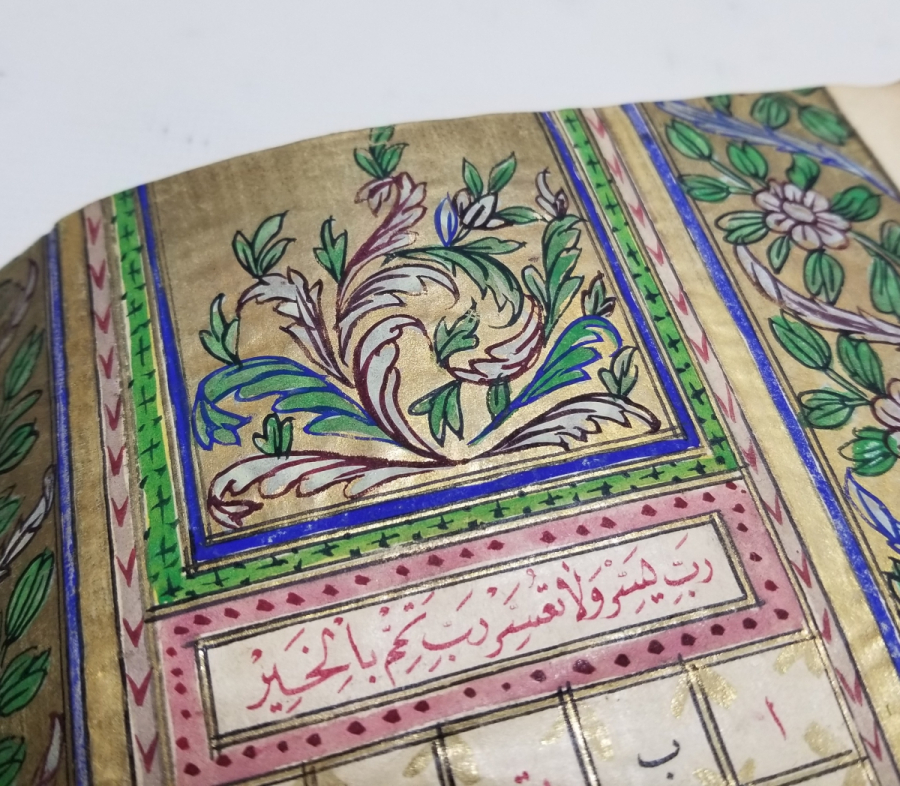 رَبِّ يَسِّرْ وَلَا تُعَسِّرْ رَبِّ تَمِّمْ بِالْخَيْرِ
ا ب